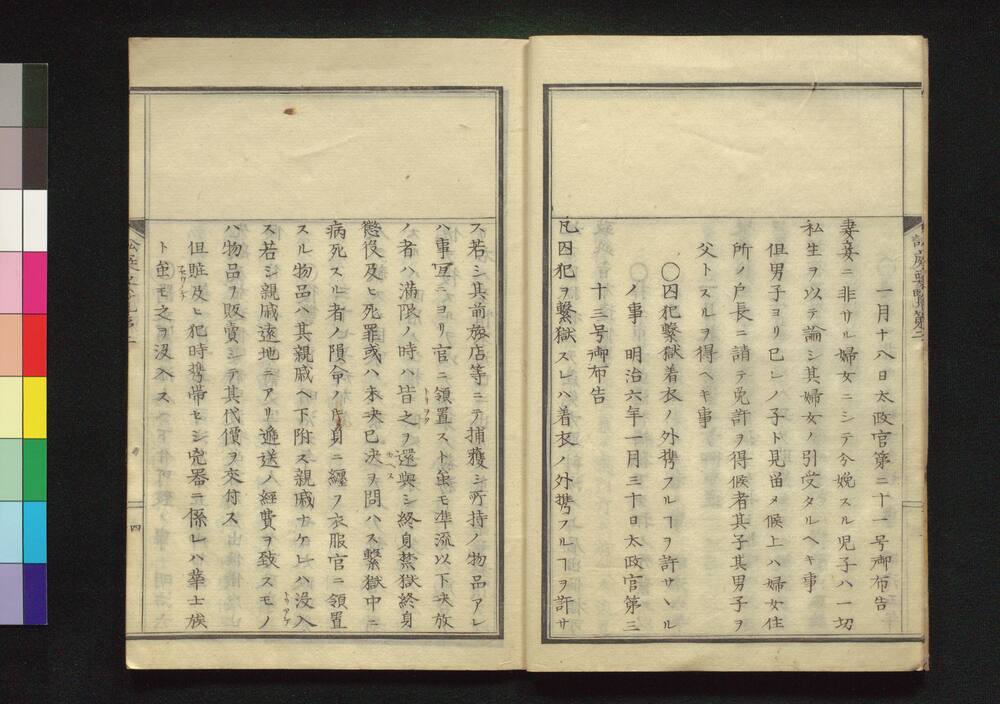 一月十八日太政官第二十一号御布告
妻妾ニ非サル婦女ニシテ分娩スル児子ハ一切
私生ヲ以テ論シ其婦女ノ引受タルヘキ事
但男子ヨリ己レノ子ト見留メ候上ハ婦女住
所ノ戸長ニ請テ免許ヲ得候者其子其男子ヲ
父トスルヲ得ヘキ事
〇囚犯繋獄着衣ノ外携フルヿヲ許サヽル
ノ事 明治六年一月三十日太政官第三
十三号御布告
凡囚犯ヲ繋獄スレハ着衣ノ外携フルヿヲ許サ
ス若シ其前旅店等ニテ捕獲シ所持ノ物品アレ
ハ事宜ニヨリ官ニ領置スト虽モ准流以下决放
ノ者ハ満限ノ時ハ皆之ヲ還與シ終身禁獄終身
懲役及ヒ死罪或ハ未决已决ヲ問ハス繋獄中ニ
病死スル者ノ隕命ノ片身ニ纒フ衣服官ニ領置
スル物品ハ其親戚ヘ下附ス親戚ナケレハ没入
ス若シ親戚遠地ニアリ逓送ノ経費ヲ致スモノ
ハ物品ヲ販賣シテ其代價ヲ交付ス
但賍及ヒ犯時携帯セシ兇器ニ係レハ華士族
ト虽モ之ヲ没入ス
四